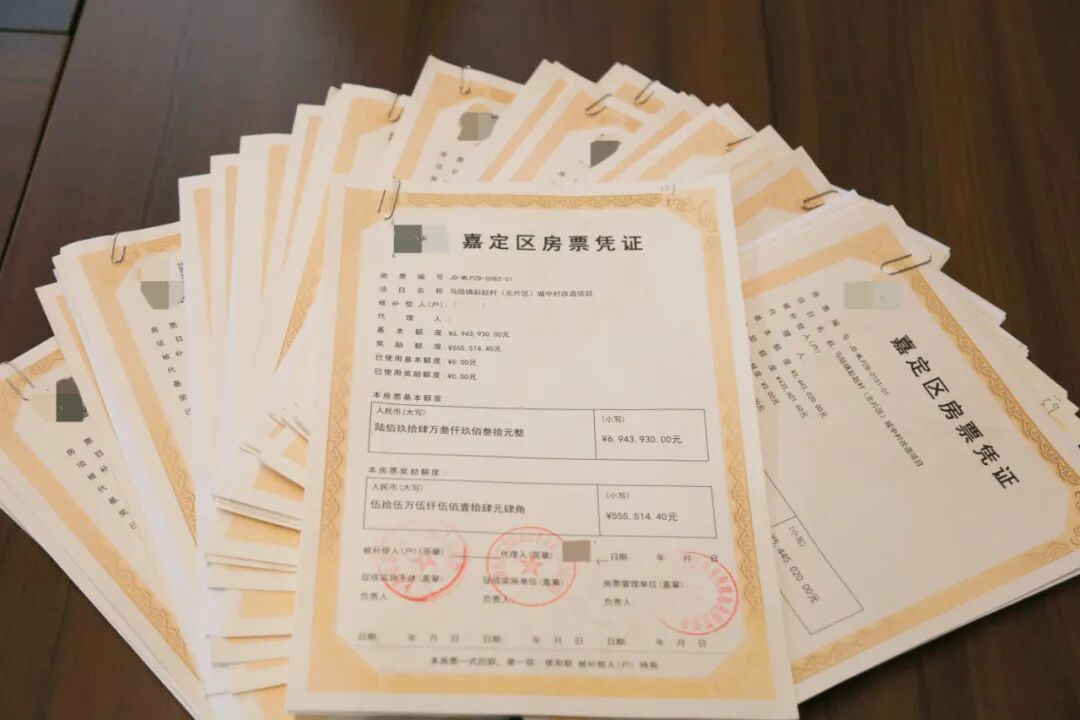 嘉定区房票凭证
房票编号 JD-MLPZB-0082-01
项目名称 马陆镇彭赵村（北片区）城中村改造项目
被补偿人(户)：（ ）
代理人：
基本额度：¥6,943,930.00元
奖励额度：¥555,514.40元
已使用基本额度：¥0.00元
已使用奖励额度：¥0.00元
本房票基本额度：
人民币(大写) (小写)
陆佰玖拾肆万叁仟玖佰叁拾元整 ¥6,943,930.00元
本房票奖励额度：
人民币(大写) (小写)
伍拾伍万伍仟伍佰壹拾肆元肆角 ¥555,514.40元
被补偿人(户)(签章) 代理人(签章) 日期： 年 月 日
征收实施主体(盖章) 征收实施单位(盖章) 房票管理单位(盖章)：
负责人 负责人 负责人
日期： 年 月 日 日期： 年 月 日 日期： 年 月 日
本房票一式四联，第一联：使用联 被补偿人(户)持有
嘉定区房票凭证
房票编号 JD-MLPZB-0151-01
项目名称 马陆镇彭赵村（北片区）城中村改造项目
被补偿人(户)
代理人
基本额度 ¥5,445,020.00元
额度 ¥435,601.60元
额度 ¥0.00元
¥0.00元
(小写)
¥5,445,020.00元
房票
项目
被补
代
基
奖
已
房票
项目
被补
代
基
奖
已